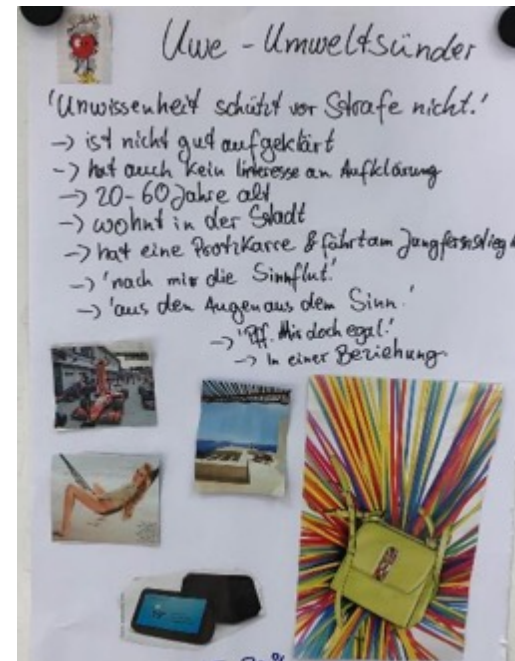 Uwe - Umweltsünder
'Unwissenheit schützt vor Strafe nicht.'
-> ist nicht gut aufgeklärt
-> hat auch kein Interesse an Aufklärung
-> 20-60 Jahre alt
-> wohnt in der Stadt
-> hat eine Protzkarre & fährt am Jungfernstieg
-> 'nach mir die Sinnflut.'
-> 'aus den Augen aus dem Sinn.'
-> 'Pff. Mir doch egal.'
-> In einer Beziehung